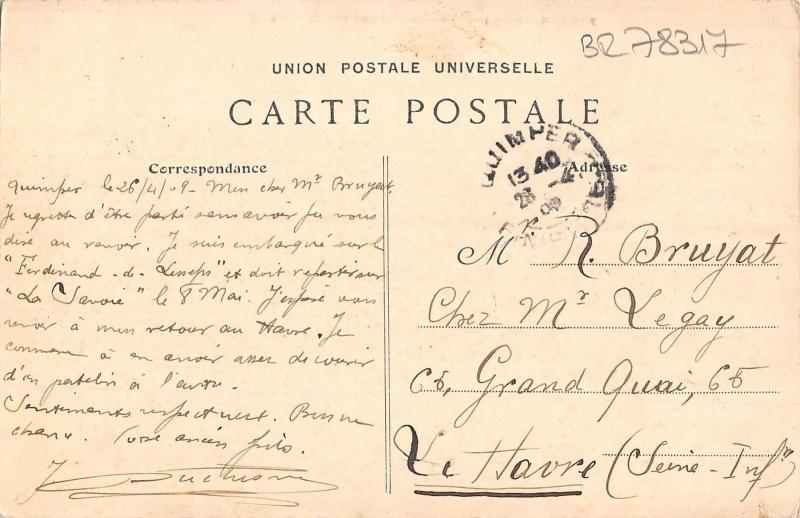 BR 78317
UNION POSTALE UNIVERSELLE
CARTE POSTALE
Correspondance
Quimper le 26/4/09 - Mon cher Mr Bruyat.
Je regrette d'être parti sans avoir pu vous
dire au revoir. Je suis embarqué sur le
"Ferdinand-de-Lesseps" et doit repartir sur
"La Savoie" le 8 Mai. J'espère vous
revoir à mon retour au Havre. Je
commence à en avoir assez de courir
d'un patelin à l'autre.
Sentiments respectueux. Bonne
chance. Votre ancien
J. Duchesne
QUIMPER
13 40
26 -4
09
Adresse
Mr R. Bruyat
Chez Mr Legay
65, Grand Quai, 65
Le Havre (Seine-Infre)